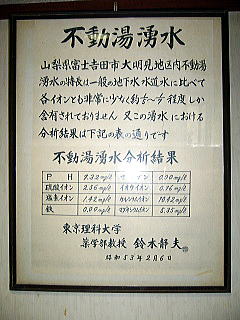 不動湯湧水
山梨県富士吉田市大明見地区内不動湯
湧水の特長は一般の地下水水道水に比べて
各イオンとも非常に少なく約 程度しか
含有されておりません 又この湧水における
分析結果は下記の表の通りです
不動湯湧水分析結果
P H 7.33
硫酸イオン 2.36 mg/ℓ
塩素イオン 1.42 mg/ℓ カルシウムイオン 10.42 mg/ℓ
鉄 0.00 mg/ℓ マグネシウムイオン 5.35 mg/ℓ
東京理科大学
薬学部教授 鈴木静夫
昭和53年2月6日